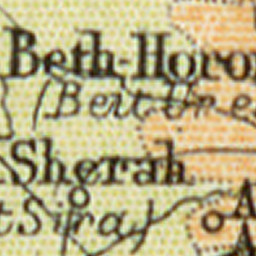 Beth-Horo
(Beit Ur e
Sherah
t Sira)
A
A